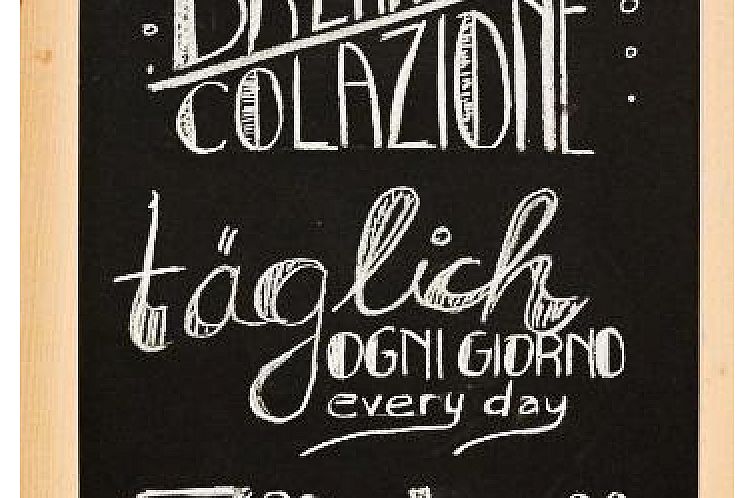 COLAZIONE
täglich
OGNI GIORNO
every day